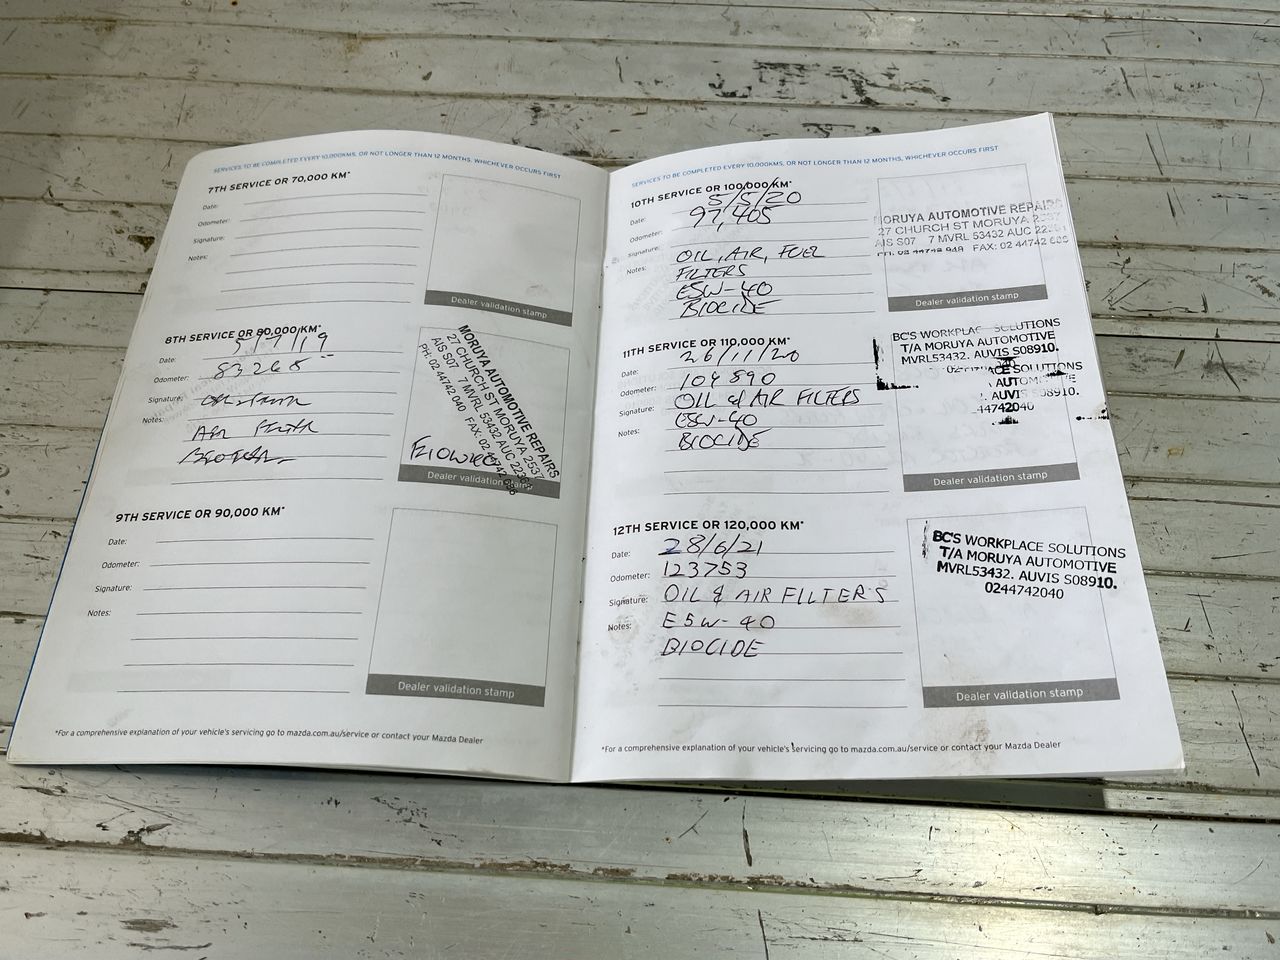 SERVICES TO BE COMPLETED EVERY 10,000KMS, OR NOT LONGER THAN 12 MONTHS, WHICHEVER OCCURS FIRST
7TH SERVICE OR 70,000 KM*
Date:
Odometer:
Signature:
Notes:
Dealer validation stamp
8TH SERVICE OR 80,000 KM*
Date:
Odometer: 83268
Signature:
Notes:
AIR FILTER
MORUYA AUTOMOTIVE REPAIRS
27 CHURCH ST MORUYA 2537
AIS S07 7 MVRL 53432 AUC
PH: 02 44742 040 FAX: 02 44742
Dealer validation stamp
9TH SERVICE OR 90,000 KM*
Date:
Odometer:
Signature:
Notes:
Dealer validation stamp
*For a comprehensive explanation of your vehicle's servicing go to mazda.com.au/service or contact your Mazda Dealer
SERVICES TO BE COMPLETED EVERY 10,000KMS, OR NOT LONGER THAN 12 MONTHS, WHICHEVER OCCURS FIRST
10TH SERVICE OR 100,000 KM*
Date: 5/5/20
Odometer: 97,405
Signature:
Notes: OIL, AIR, FUEL
FILTERS
E5W-40
BIOCIDE
MORUYA AUTOMOTIVE REPAIRS
27 CHURCH ST MORUYA 2537
AIS S07 7 MVRL 53432 AUC
FAX: 02 44742
Dealer validation stamp
11TH SERVICE OR 110,000 KM*
Date: 26/11/20
Odometer: 109890
Signature: OIL & AIR FILTERS
Notes: E5W-40
BIOCIDE
BC'S WORKPLAC SOLUTIONS
T/A MORUYA AUTOMOTIVE
MVRL53432. AUVIS S08910.
ACE SOLUTIONS
AUTOM
AUVIS S08910.
44742040
Dealer validation stamp
12TH SERVICE OR 120,000 KM*
Date: 28/6/21
Odometer: 123753
Signature: OIL & AIR FILTER'S
Notes: E5W-40
BIOCIDE
BC'S WORKPLACE SOLUTIONS
T/A MORUYA AUTOMOTIVE
MVRL53432. AUVIS S08910.
0244742040
Dealer validation stamp
*For a comprehensive explanation of your vehicle's servicing go to mazda.com.au/service or contact your Mazda Dealer